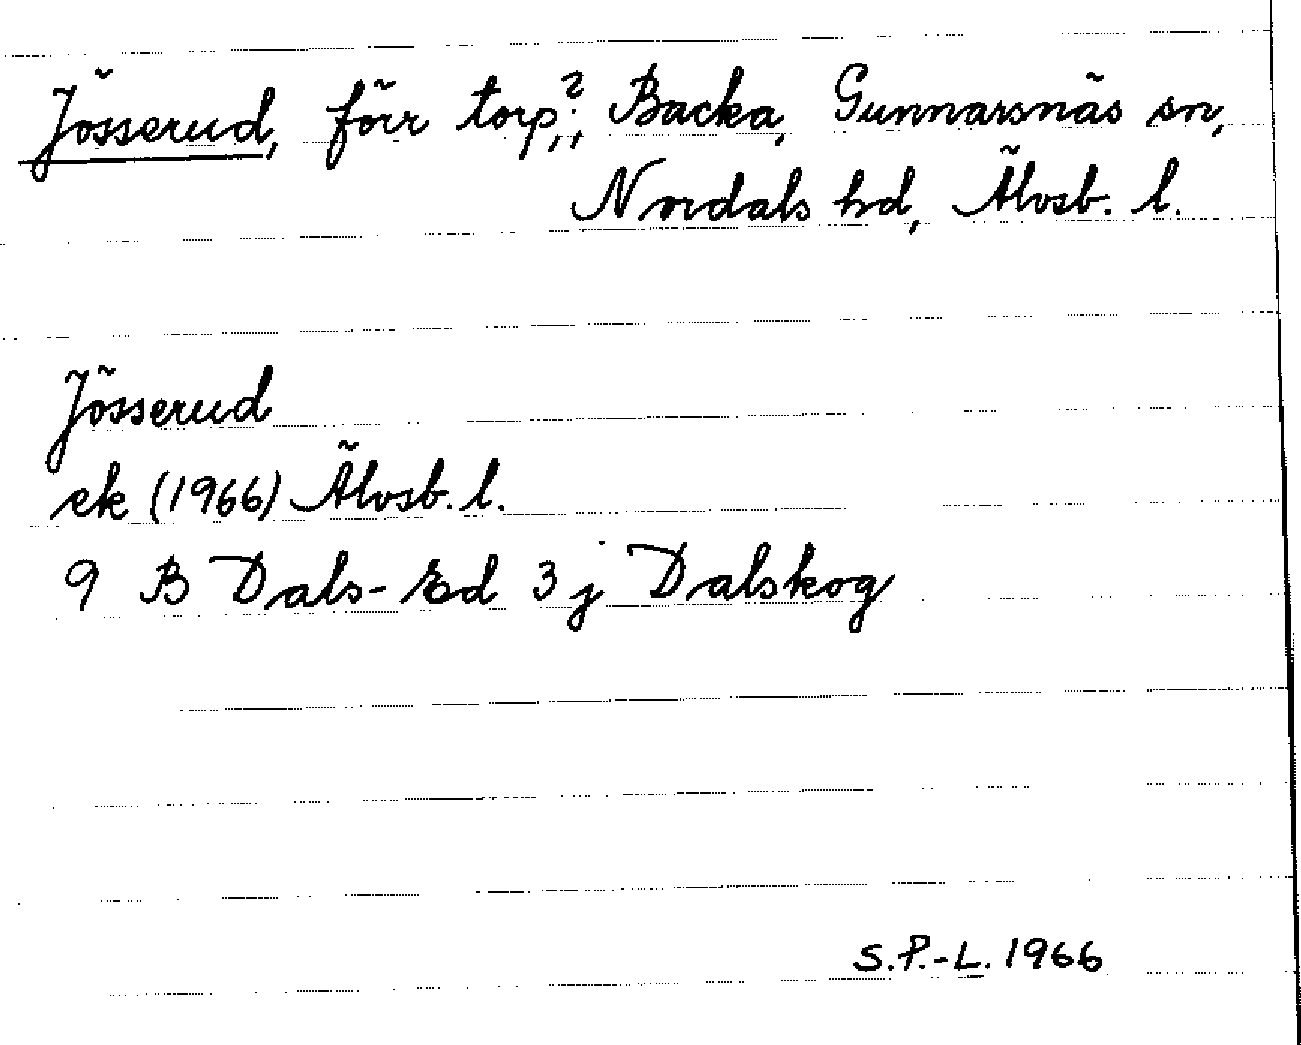 Jösserud, förr torp,?, Backa, Gunnarsnäs sn,
Nordals hd, Älvsb. l.
Jösserud
ek (1966) Älvsb. l.
9 B Dals-Ed 3 j Dalskog
S.P.-L. 1966